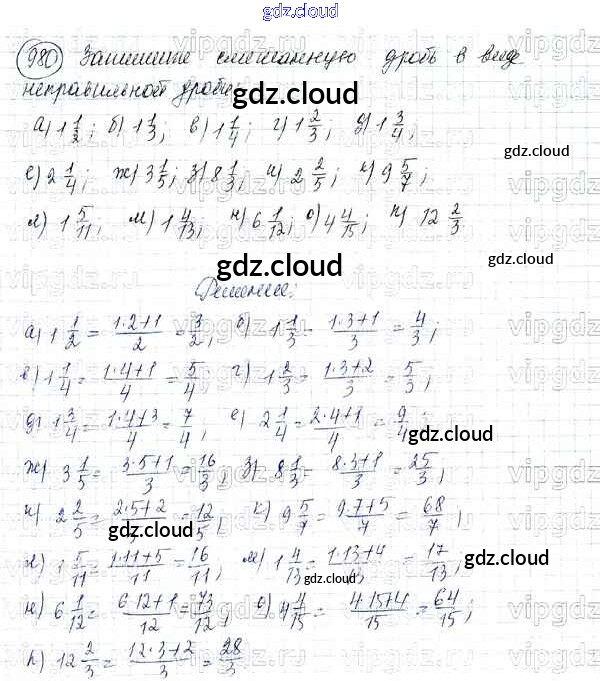 gdz.cloud
980 Запишите смешанную дробь в виде
неправильной дроби:
gdz.cloud
а) 1 1/2; б) 1 1/3; в) 1 1/4; г) 1 2/3; д) 1 3/4;
gdz.cloud
е) 2 1/4; ж) 3 1/5; з) 8 1/3; и) 2 2/5; к) 9 5/7;
л) 1 5/11; м) 1 4/13; н) 6 1/12; о) 4 4/15; п) 12 2/3.
gdz.cloud
gdz.cloud
Решение:
а) 1 1/2 = (1·2+1)/2 = 3/2; б) 1 1/3 = (1·3+1)/3 = 4/3;
gdz.cloud
в) 1 1/4 = (1·4+1)/4 = 5/4; г) 1 2/3 = (1·3+2)/3 = 5/3;
д) 1 3/4 = (1·4+3)/4 = 7/4; е) 2 1/4 = (2·4+1)/4 = 9/4;
gdz.cloud
ж) 3 1/5 = (3·5+1)/3 = 16/3; з) 8 1/3 = (8·3+1)/3 = 25/3;
и) 2 2/5 = (2·5+2)/5 = 12/5; к) 9 5/7 = (9·7+5)/7 = 68/7;
gdz.cloud
л) 1 5/11 = (1·11+5)/11 = 16/11; м) 1 4/13 = (1·13+4)/13 = 17/13;
gdz.cloud
н) 6 1/12 = (6·12+1)/12 = 73/12; о) 4 4/15 = (4·15+4)/15 = 64/15;
п) 12 2/3 = (12·3+2)/3 = 28/3
gdz.cloud